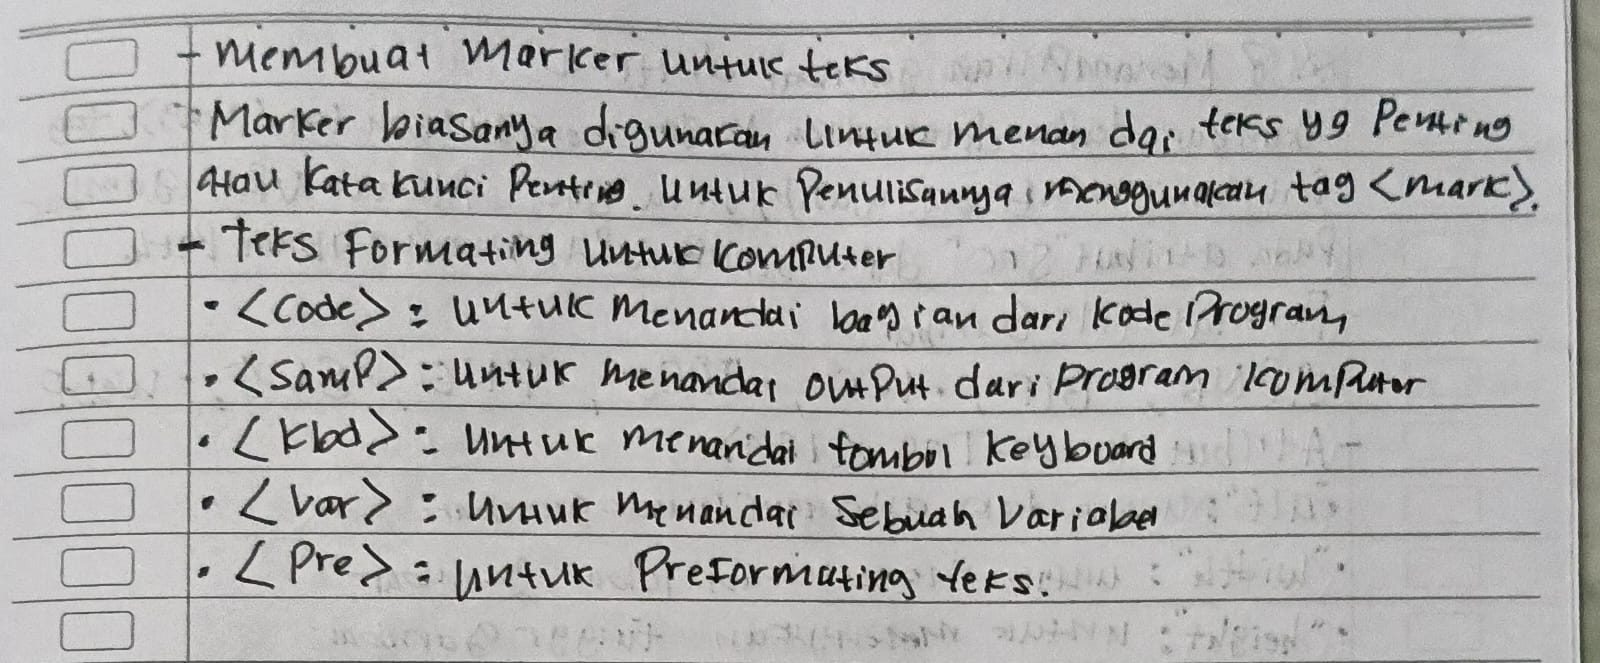 - Membuat Marker untuk teks
- Marker biasanya digunakan untuk menandai teks yg Penting
atau Kata kunci Penting. Untuk Penulisannya menggunakan tag <mark>.
- Teks Formating Untuk Komputer
• <Code> : Untuk Menandai bagian dari Kode Program
• <Samp> : Untuk menandai output dari Program Komputer
• <Kbd> : Untuk menandai tombol Keyboard
• <Var> : Untuk Menandai Sebuah Variabel
• <Pre> : Untuk Preformating teks.